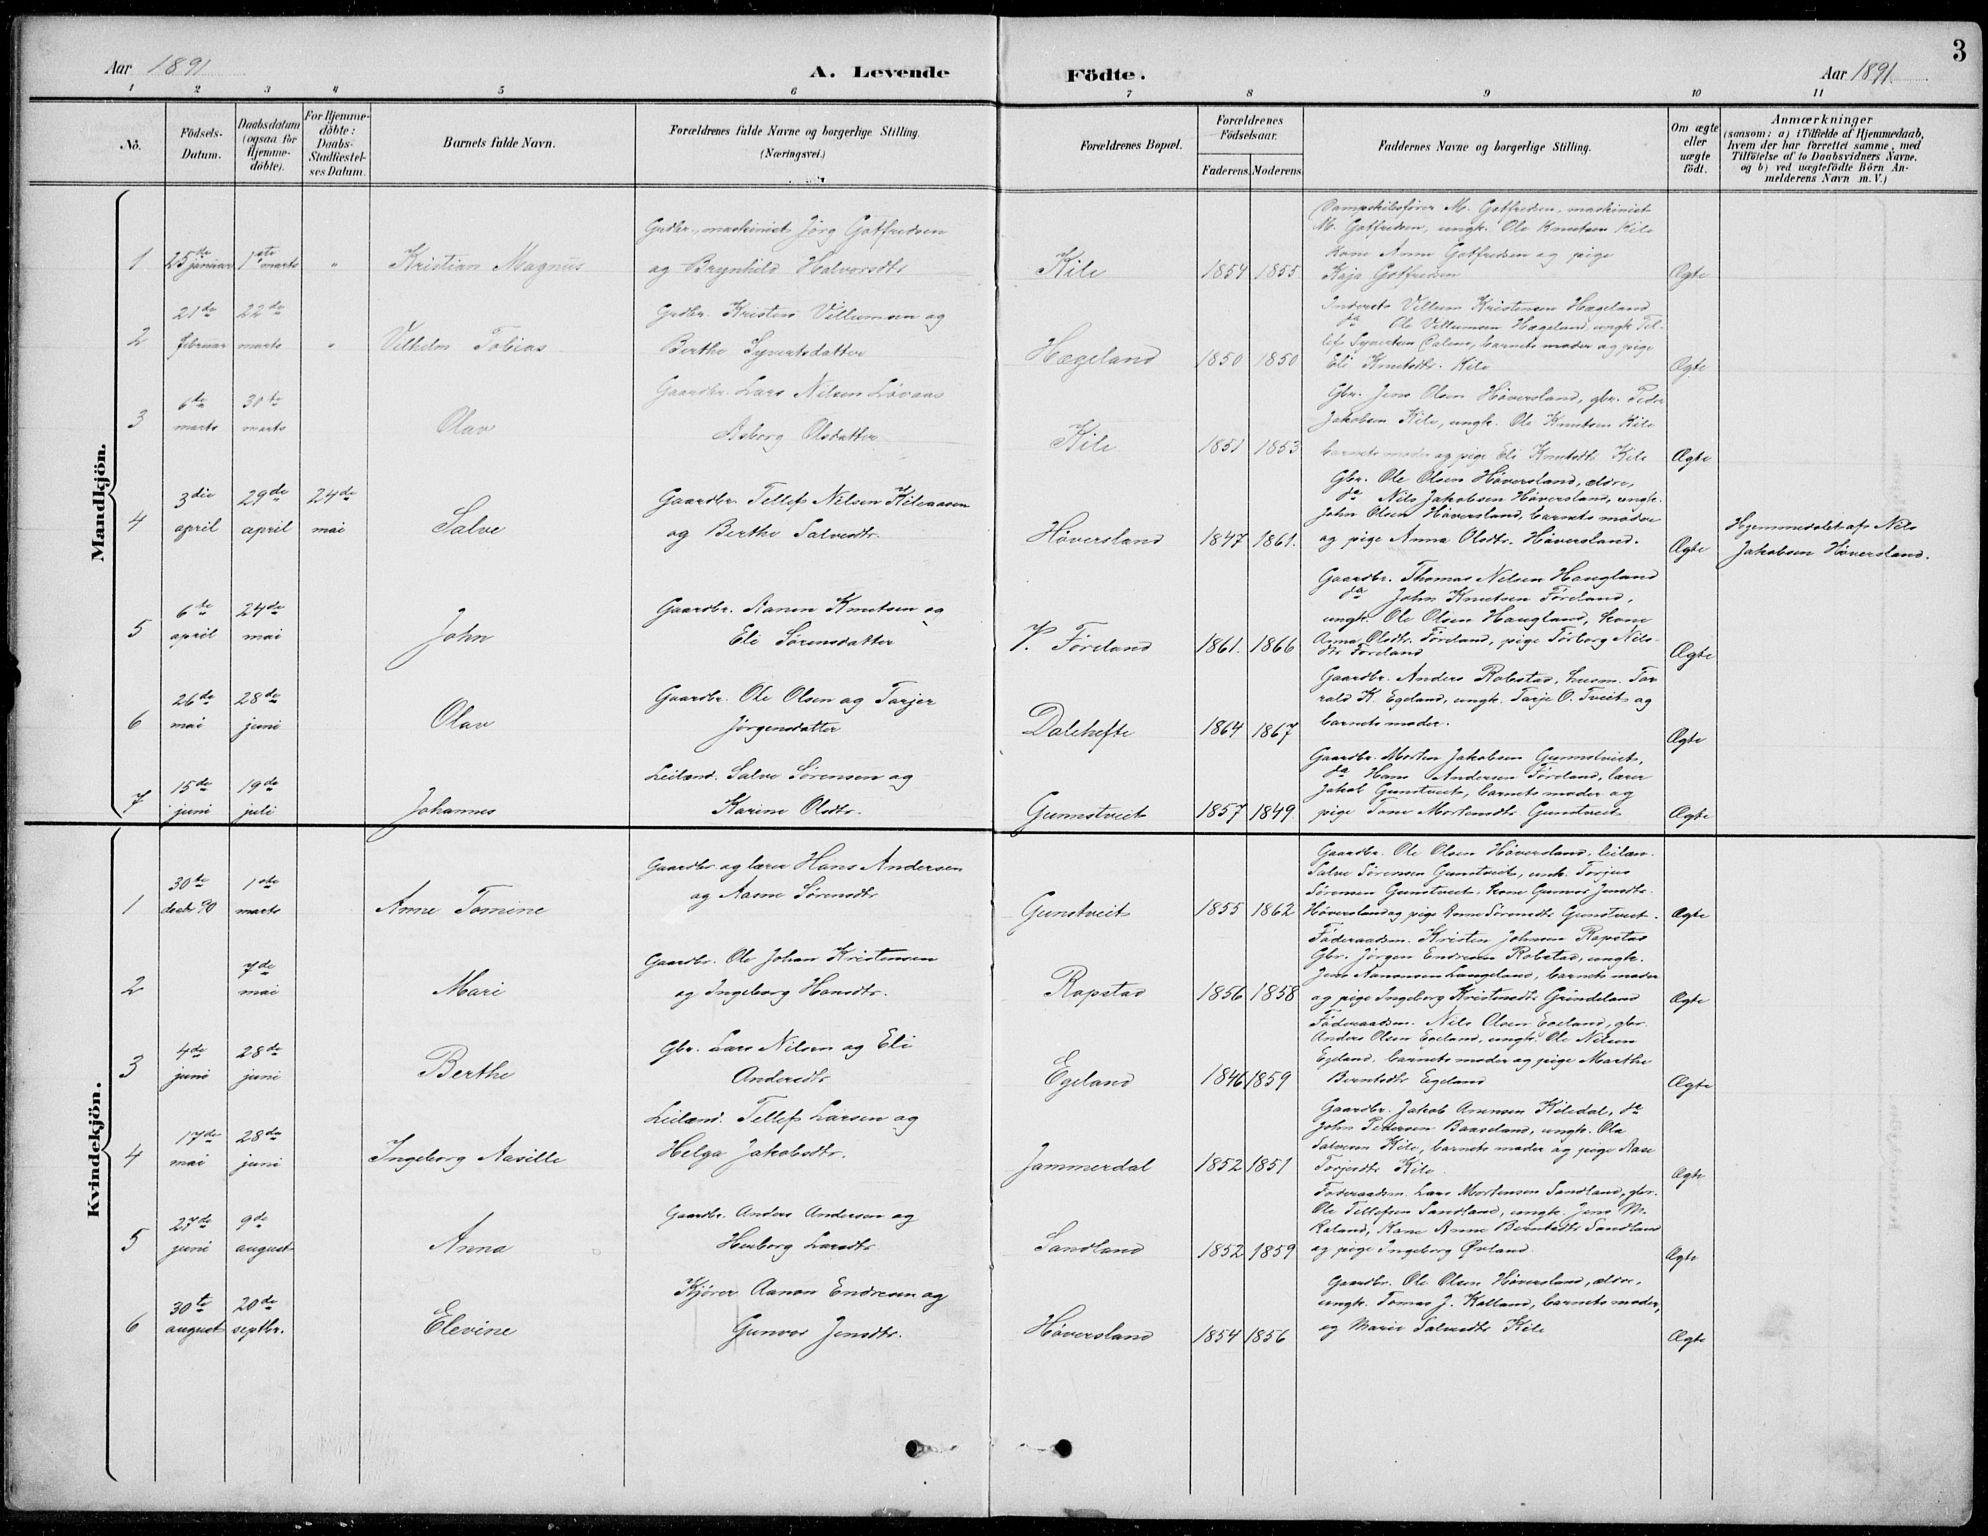 Aar 1891
A. Levende Födte.
Aar 1891
3
1 2 3 4 5 6 7 8 9 10 11
No.
Födsels-
Datum.
Daabsdatum
(ogsaa for
Hjemme-
döbte).
For Hjemme-
döbte:
Daabs-
Stadfæstel-
ses Datum.
Barnets fulde Navn.
Forældrenes fulde Navne og borgerlige Stilling.
(Næringsvei.)
Forældrenes Bopæl.
Forældrenes
Födselsaar.
Faderens. Moderens.
Faddernes Navne og borgerlige Stilling.
Om ægte
eller
uægte
födt.
Anmærkninger
(saasom: a) i Tilfælde af Hjemmedaab,
hvem der har forrettet samme, med
Tilföielse af to Daabsvidners Navne,
og b) ved uægtefödte Börn An-
melderens Navn m. V.)
Mandkjön.
1
25de januar
1ste marts
"
Kristian Magnus
Grdbr., maskinist Jörg Gotfredsen
og Brynhild Halvorsdtr
Kile
1854
1855
Dampskibsfører M. Gotfredsen, maskinist
M. Gotfredsen, ungk. Ole Knutsen Kile
Kone Anne Gotfredsen og pige
Kaja Gotfredsen
Ægte
2
21de februar
22de marts
"
Vilhelm Tobias
Grdbr. Kristen Villumsen og
Berthe Syvertsdatter
Hægeland
1850
1850
Villum Kristensen Hægeland
do Ole Villumsen Hægeland, ungk. Tel-
lef Syvertsen, barnets moder og pige
Eli Knutsdtr. Kile
Ægte
3
6te marts
30te marts
Olav
Gaardbr. Lars Nilsen Løvaas
Asborg Olsdatter
Kile
1851
1853
Gbr. Jens Olsen Höversland, gbr. Peder
Jakobsen Kile, ungk. Ole Knutsen Kile
barnets moder og pige Eli Knutsdtr Kile
Ægte
4
3die april
29de april
24de mai
Salve
Gaardbr. Tellef Nilsen Kileaasen
og Berthe Salvesdtr.
Höversland
1847
1861.
Gbr. Ole Olsen Höversland, ældre,
do Nils Jakobsen Höversland, ungk.
John Olsen Höversland, barnets moder
og pige Anna Olsdtr. Höversland.
Ægte
Hjemmedøbt af Nils
Jakobsen Höversland.
5
6te april
24de mai
John
Gaardbr. Aanen Knutsen og
Eli Sørensdatter
V. Føreland
1861.
1866
Gaardbr. Thomas Nilsen Haugland
do John Knutsen Føreland,
ungk. Ole Olsen Haugland, kone
Anna Olsdtr. Føreland, pige Torborg Nils-
dtr Føreland
Ægte
6
26de mai
28de juni
Olav
Gaardbr. Ole Olsen og Tarjer
Jörgensdatter
Dalehefte
1864
1867
Gaardbr. Anders Robstad, husm. Tor-
rald K. Egeland, ungk. Tarje O. Tveit og
barnets moder.
Ægte
7
15de juni
19de juli
Johannes
Leilænd. Salve Sørensen og
Karine Olsdtr.
Gunnstveit
1857
1849
Gaardbr. Morten Jakobsen Gunnstveit,
do Hans Andersen Føreland, lærer
Jakob Gunstveit, barnets moder og
pige Tone Mortensdtr Gunstveit
Ægte
Kvindekjön.
1
30te decbr 90
1ste marts
Anne Tomine
Gaardbr. og lærer Hans Andersen
og Aasne Sørensdtr
Gunstveit
1855
1862
Gaardbr. Ole Olsen Höversland, leilæn.
Salve Sørensen Gunstveit, unk. Torjus
Sørensen Gunstveit. kone Gunvor Jensdtr.
Höversland og pige Anne Sørensdtr Gunstveit.
Ægte
2
7de mai
Mari
Gaardbr. Ole Johan Kristensen
og Ingeborg Hansdtr.
Rapstad
1856
1858
Föderaadsm. Kristen Johnsen Rapstad
Gbr. Jörgen Endresen Robstad, ungk.
Jens Aanonsen Langeland, barnets moder
og pige Ingeborg Kristensdtr Grindeland
Ægte
3
4de juni
28de juni
Berthe
Gbr. Lars Nilsen og Eli
Andersdtr
Egeland
1846
1859
Föderaadsm. Nils Olsen Egeland, gbr.
Anders Olsen Egeland, ungk. Ole Nilsen
Egeland, barnets moder og pige Marthe
Berntsdtr Egeland
Ægte
4
17de mai
28de juni
Ingeborg Aasille
Leilænd. Tellef Larsen og
Helga Jakobsdtr.
Jammerdal
1852
1851
Gaardbr. Jakob Arensen Kiledal, do
John Pettersen Baaseland, ungk. Ola
Salvesen Kile, barnets moder og pige Aase
Torjersdtr Kile
Ægte
5
27de juni
9de august
Anna
Gaardbr. Anders Andersen og
Herborg Larsdtr
Sandland
1852
1859
Föderaadsm. Lars Mortensen Sandland, gbr.
Ole Tellefsen Sandland, ungk. Jens M.
Røland, Kone Anne Berntsdtr Sandland
og pige Ingeborg Øvland.
Ægte
6
30te august
20de septbr.
Elevine
Kjörer Aanon Endresen og
Gunvor Jensdtr.
Höversland
1854
1856
Gaardbr. Ole Olsen Höversland, ældre,
ungk. Tomas J. Kolland, barnets moder,
og Marie Salvesdtr Kile
Ægte